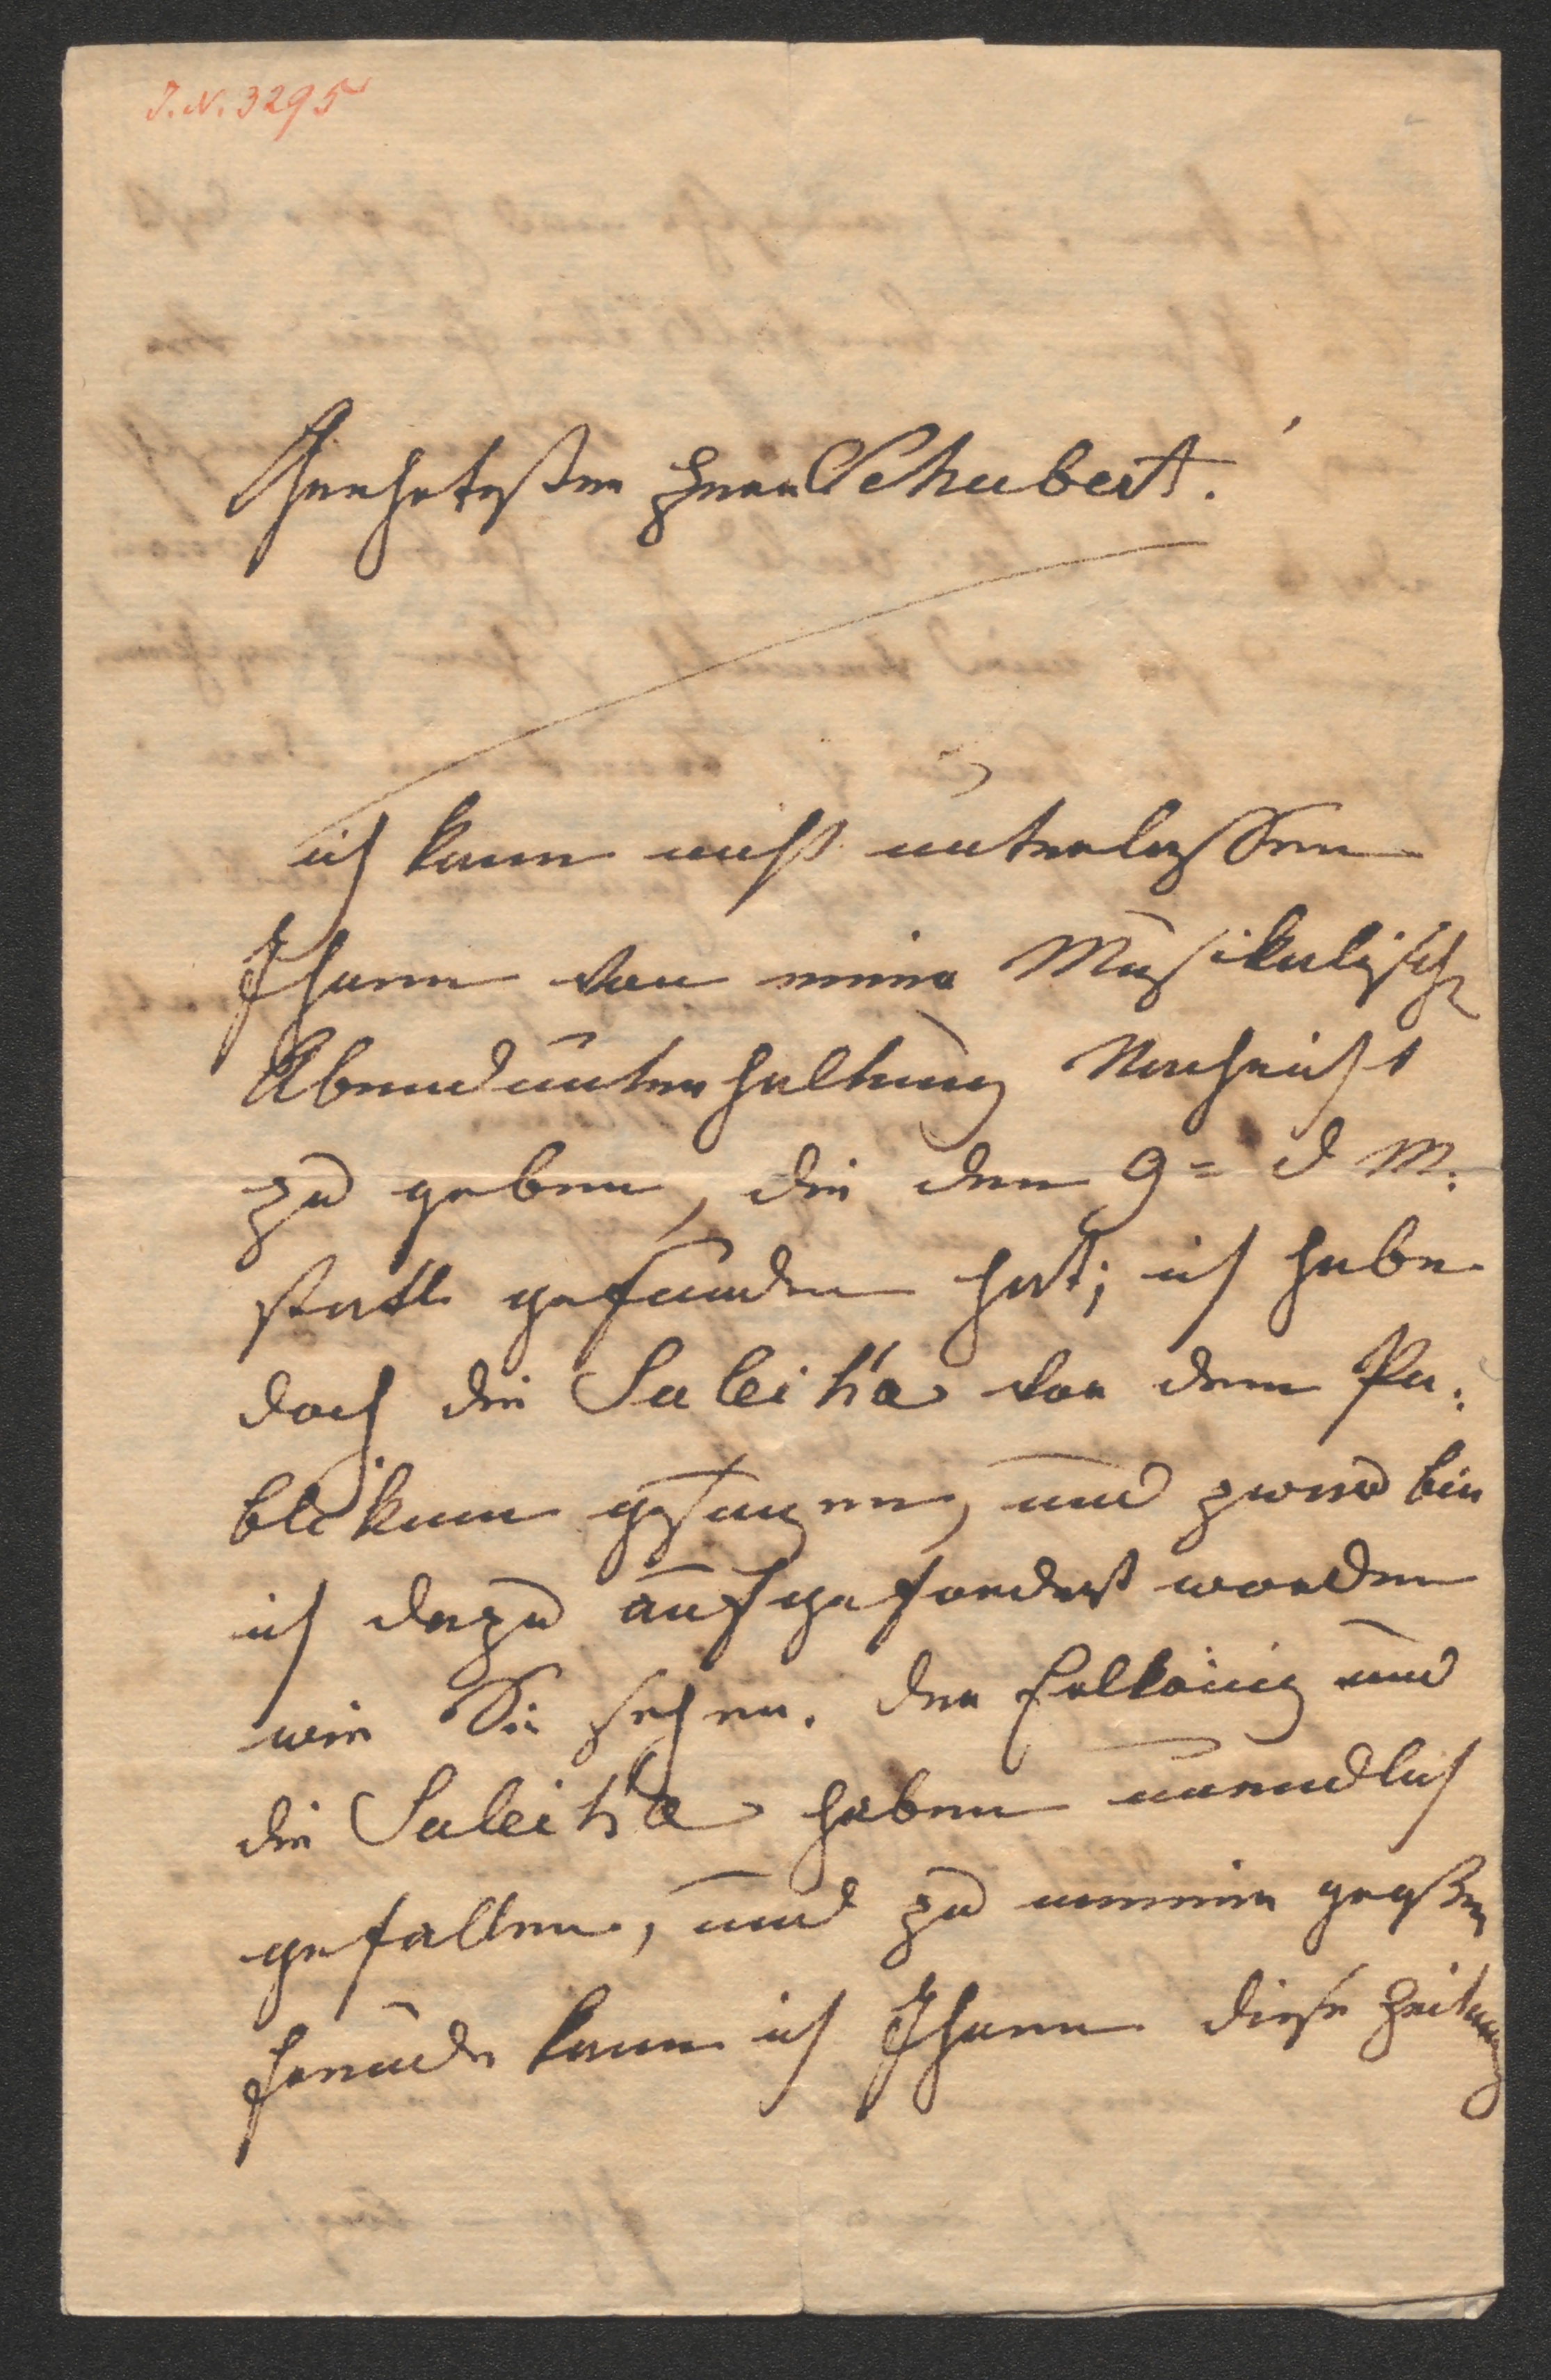 J.N. 3295
Geehrtester Herr Schubert.
ich kann nicht unterlassen
Ihnen von meine Musikalische
Abendunterhaltung Nachricht
zu geben, die den 9= d M:
statt gefunden hat; ich habe
doch die Suleika vor dem Pu:
blikum gesungen, und zwar bin
ich dazu aufgefordert worden
wie Sie sehen. der Erlkönig und
die Suleika haben unendlich
gefallen, und zu meiner großen
Freude kann ich Ihnen diese Zeitung